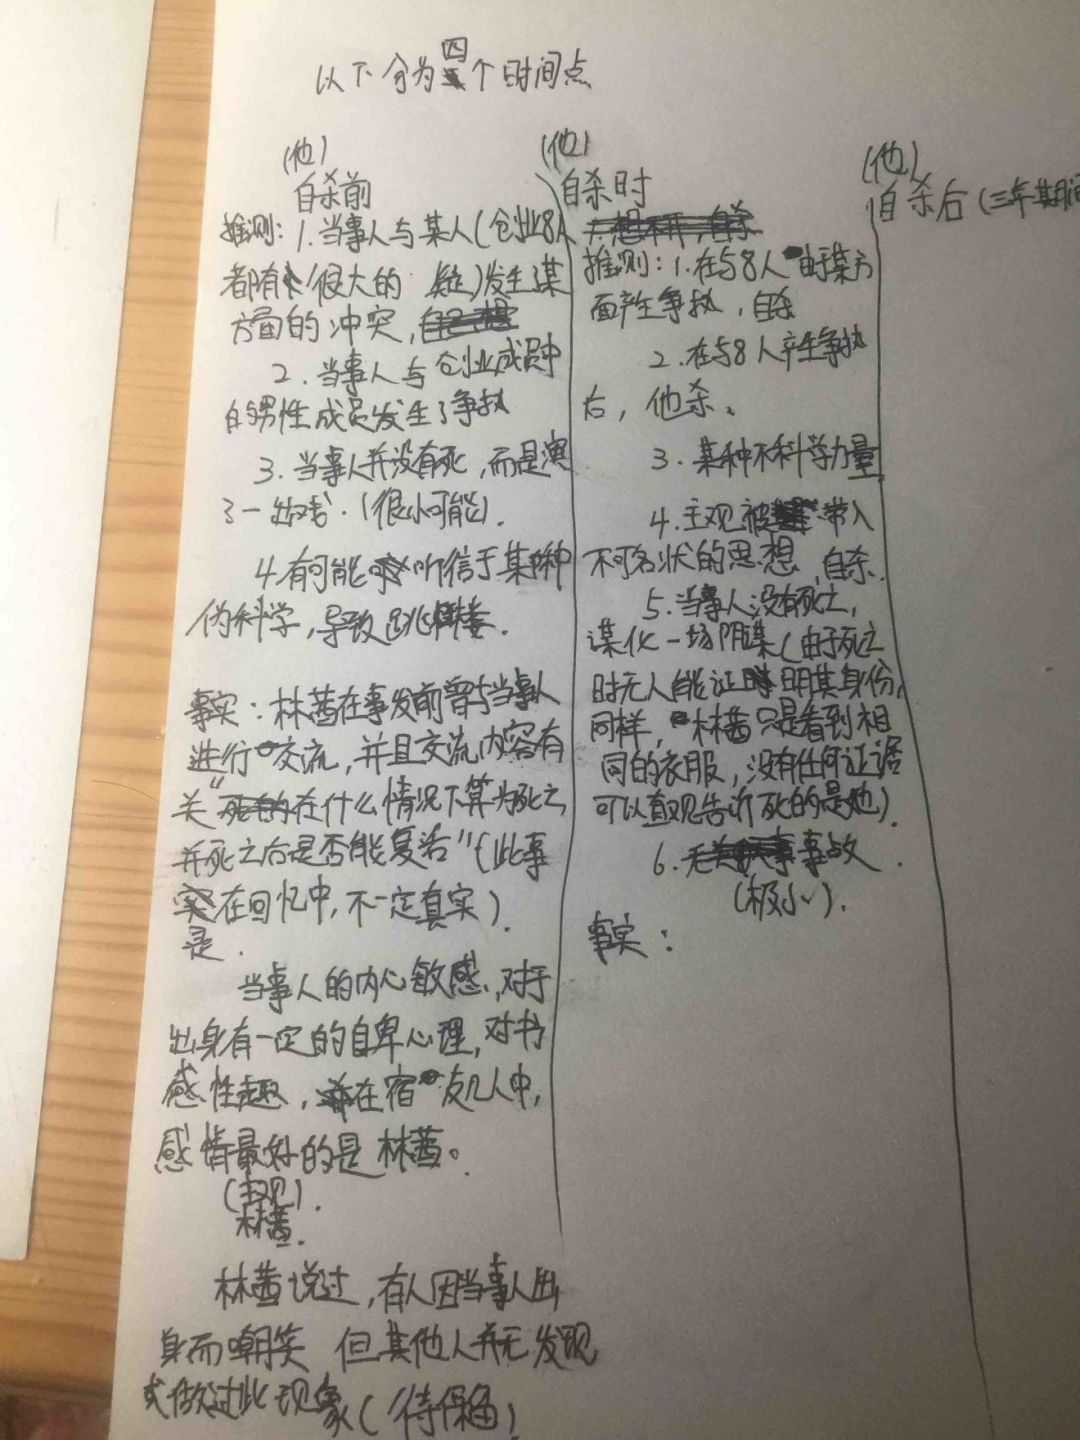 以下分为四个时间点
(他)
自杀前
推测：1.当事人与某人(创业8人
都有很大的 疑)发生谋
方面的冲突，
2.当事人与创业成员中
的男性成员发生了争执
3.当事人并没有死，而是演
了一出戏.(很小可能).
4.有可能听信于某种
伪科学，导致跳楼.
事实：林茜在事发前曾与当事人
进行交流，并且交流内容有
关"在什么情况下算为死亡
并死亡后是否能复活"(此事
在回忆中，不一定真实)
是.
当事人的内心敏感，对于
出身有一定的自卑心理，对书
感性趣，在宿友几人中，
感情最好的是林茜。
(主观).
林茜.
林茜说过，有人因当事人出
身而嘲笑 但其他人并无发现
或做过此现象(待保留)
(他)
自杀时
推测：1.在与8人由于某方
面产生争执，自杀
2.在与8人产生争执
后，他杀。
3.某种不科学力量
4.主观被带入
不可名状的思想，自杀.
5.当事人没有死亡，
谋化一场阴谋(由于死亡
时无人能证明其身份，
同样，林茜只是看到相
同的衣服，没有任何证据
可以直观告诉死的是她).
6.无事故.
(极小).
事实：
(他)
自杀后(三年期间